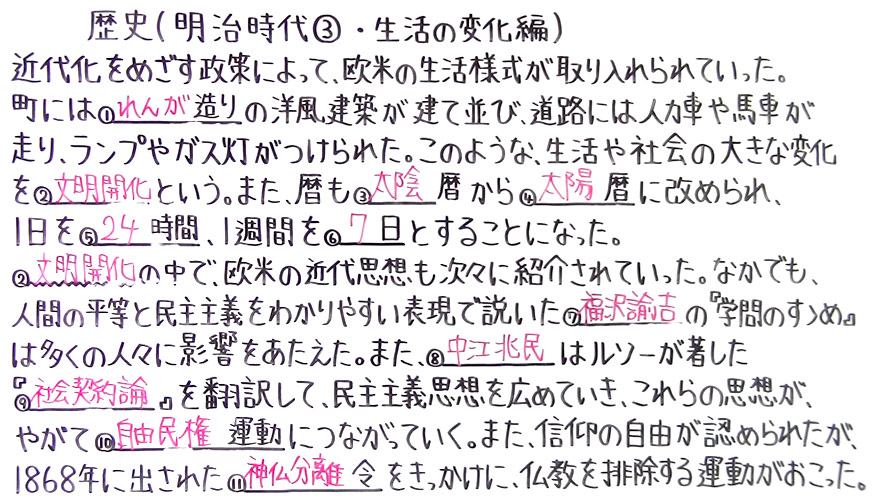 歴史(明治時代③・生活の変化編)
近代化をめざす政策によって、欧米の生活様式が取り入れられていった。
町には①れんが造りの洋風建築が建て並び、道路には人力車や馬車が
走り、ランプやガス灯がつけられた。このような、生活や社会の大きな変化
を②文明開化という。また、暦も③太陰暦から④太陽暦に改められ、
1日を⑤24時間、1週間を⑥7日とすることになった。
②文明開化の中で、欧米の近代思想も次々に紹介されていった。なかでも、
人間の平等と民主主義をわかりやすい表現で説いた⑦福沢諭吉の『学問のすゝめ』
は多くの人々に影響をあたえた。また、⑧中江兆民はルソーが著した
『⑨社会契約論』を翻訳して、民主主義思想を広めていき、これらの思想が、
やがて⑩自由民権運動につながっていく。また、信仰の自由が認められたが、
1868年に出された⑪神仏分離令をきっかけに、仏教を排除する運動がおこった。